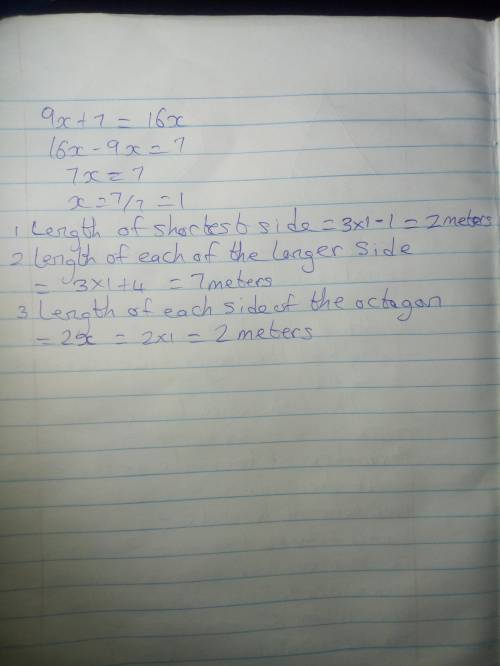 9x+7 = 16x
16x - 9x = 7
7x = 7
x = 7/7 = 1
1 Length of shortest side = 3x1-1 = 2 meters
2 Length of each of the longer side
= 3x1+4 = 7 meters
3 Length of each side of the octagon
= 2x = 2x1 = 2 meters